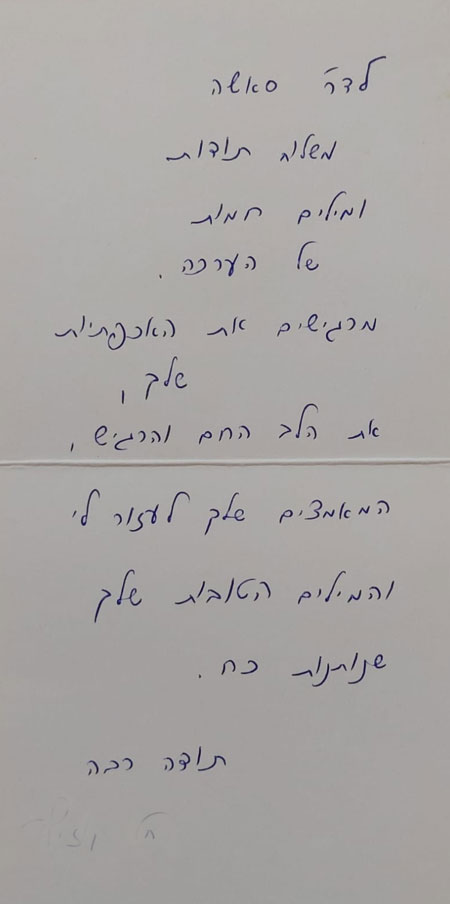 לדר' סאשה
משלוח תודות
ומילים חמות
של הערכה.
מרגישים את האכפתיות
שלך,
את הלב החם והרגיש,
המאמצים שלך לעזור לי
והמילים הטובות שלך
שנותנות כח.
תודה רבה